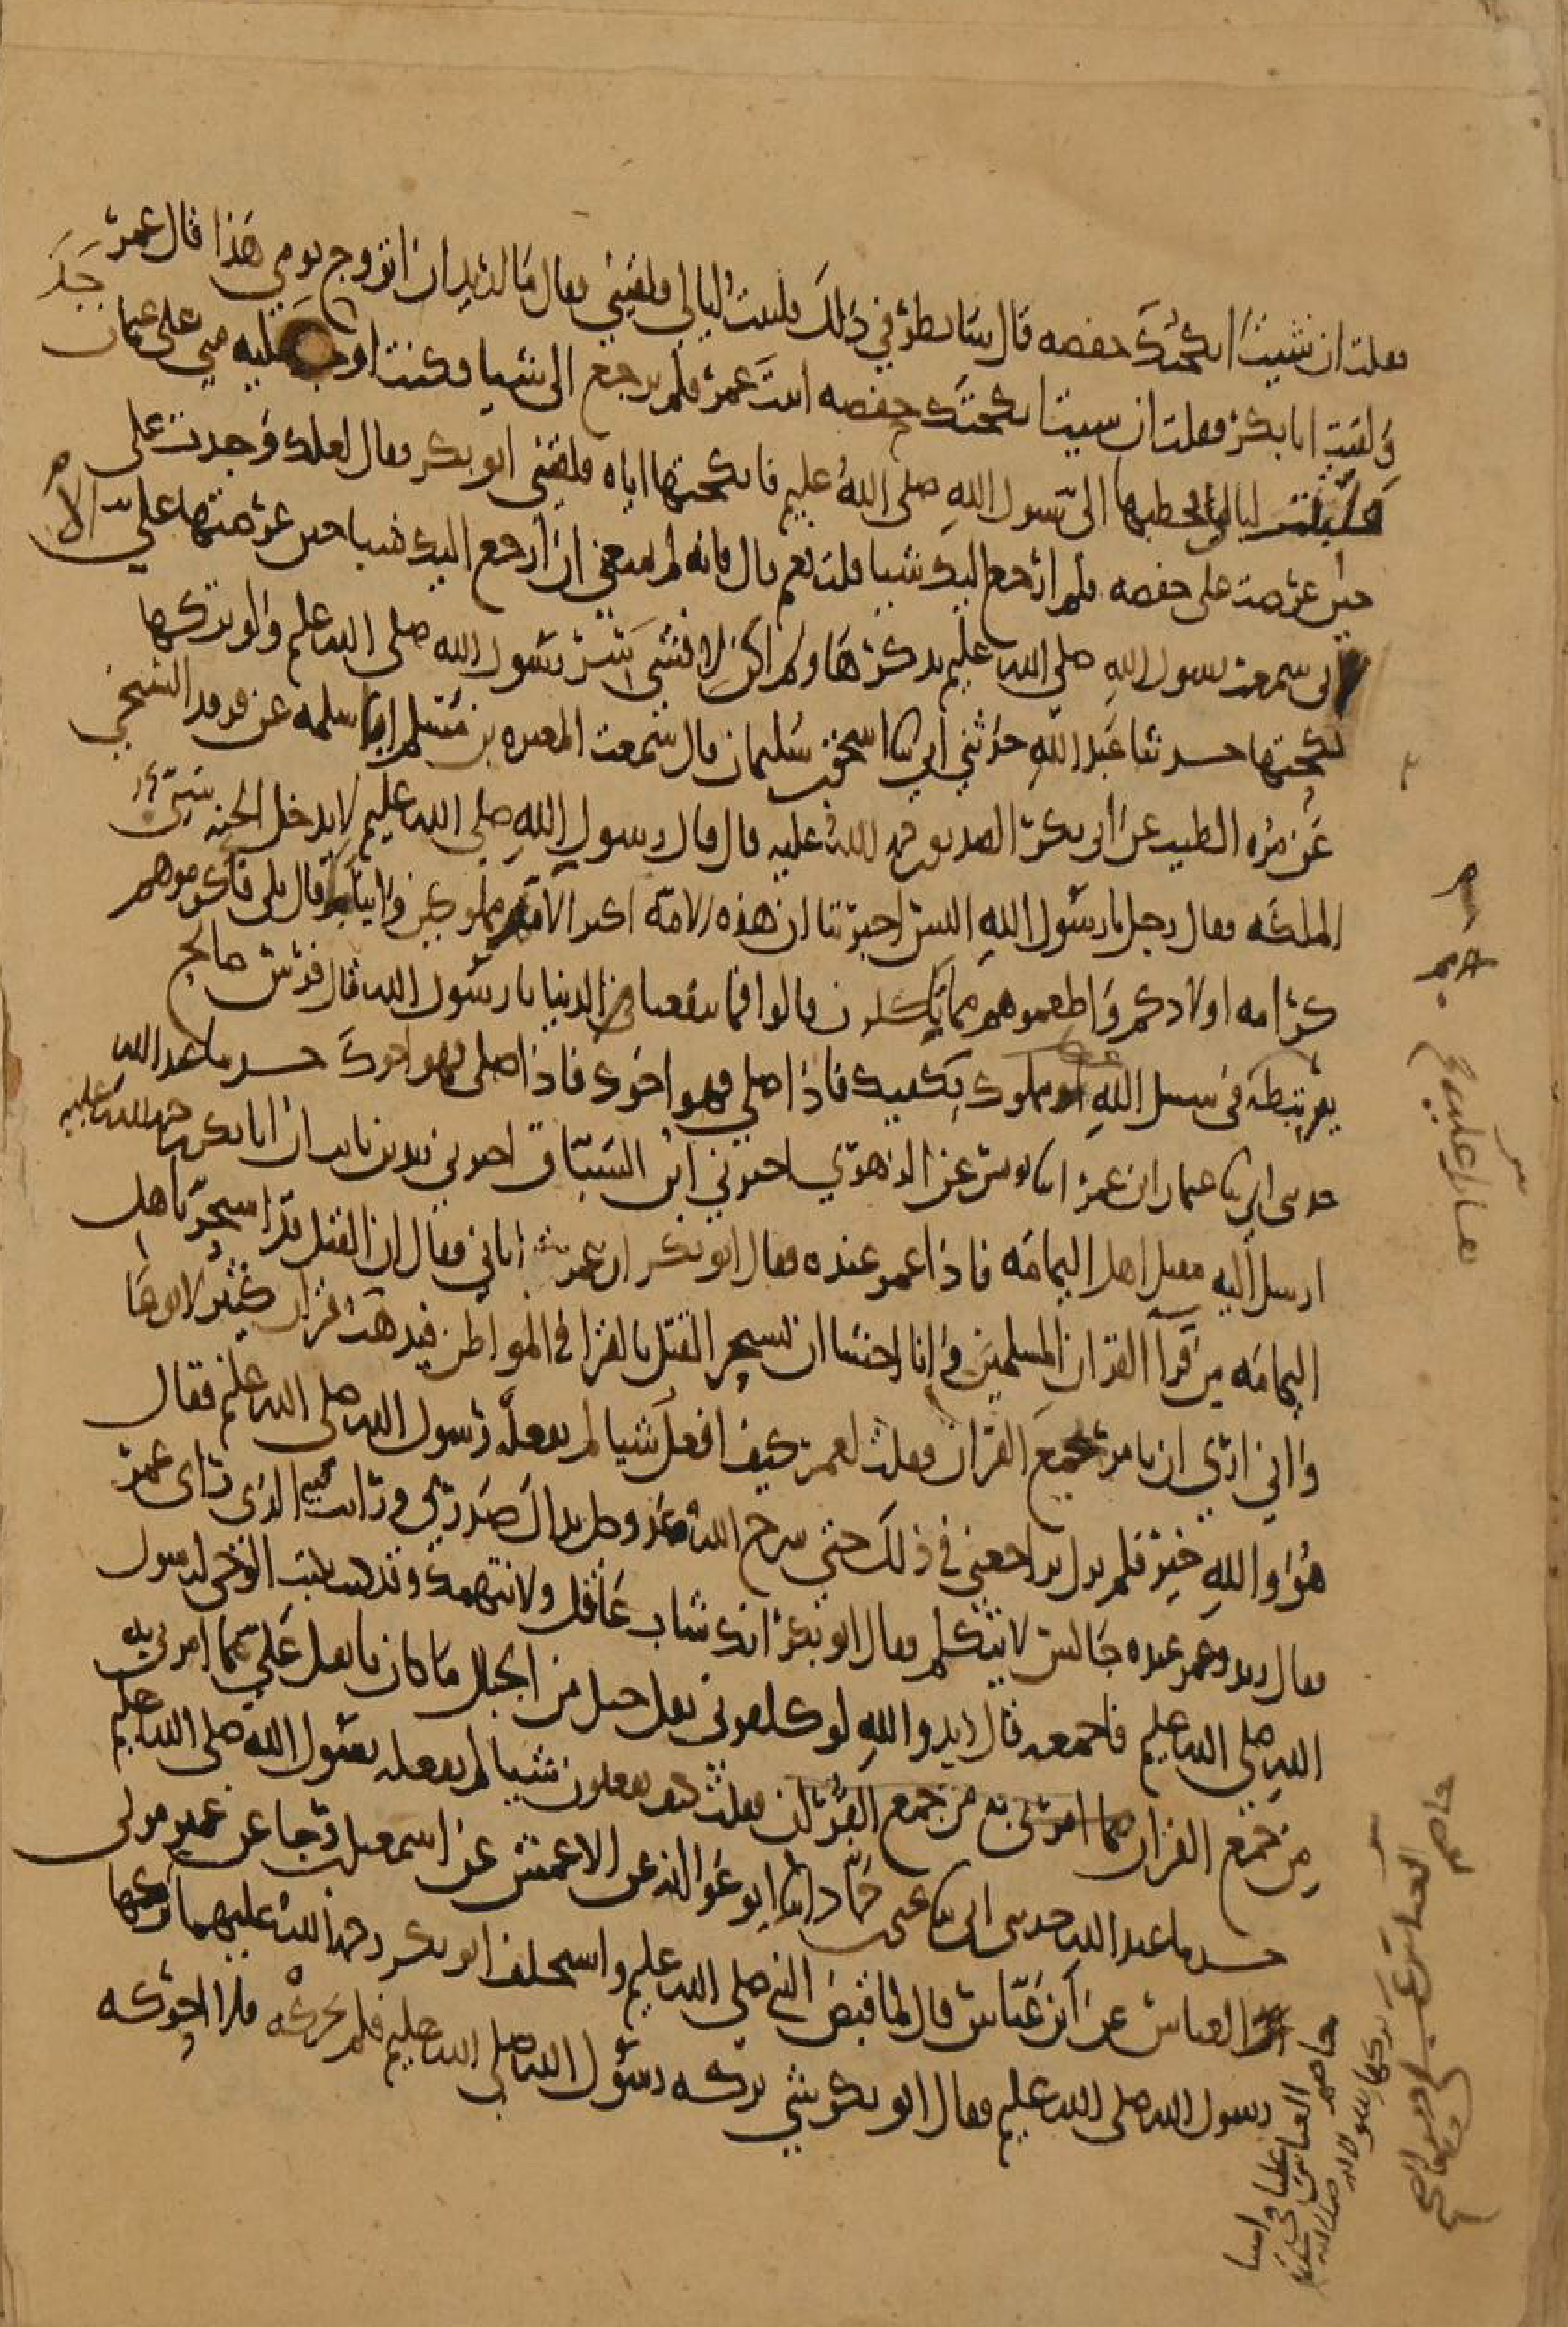 فقلت ان شئت انكحتك حفصه قال سانظر في ذلك فلبثت ليالي فلقيني فقال ما اريد ان اتزوج يومي هذا قال عمر
فلقيت ابا بكر فقلت ان شئت انكحتك حفصه ابنت عمر فلم يرجع الي شيا فكنت اوجد عليه مني على عثمان
فلبثت ليالي فخطبها الى رسول الله صلى الله عليه فانكحتها اياه فلقيني ابو بكر فقال لعلك وجدت علي
حين عرضت علي حفصه فلم ارجع اليك شيا قلت نعم قال فانه لم يمنعني ان ارجع اليك شيا حين عرضتها علي الا
اني سمعت رسول الله صلى الله عليه يذكرها ولم اكن لافشي سر رسول الله صلى الله عليه ولو تركها
نكحتها حدثنا عبد الله حدثني ابي نا اسحق بن سليمان قال سمعت المغيره بن مسلم ابا سلمه عن فرقد السبخي
عن مره الطيب عن ابي بكر الصديق رحمة الله عليه قال قال رسول الله صلى الله عليه لا يدخل الجنه سيئ
الملكه فقال رجل يا رسول الله اليس اخبرتنا ان هذه الامه اكثر الامم مملوكين وايتاما قال بلى فاكرموهم
كرامه اولادكم واطعموهم مما تاكلون قالوا فما ينفعنا من الدنيا يا رسول الله قال فرس صالح
ترتبطه في سبيل الله ومملوك يكفيك فاذا صلى فهو اخوك فاذا صلى فهو اخوك حدثنا عبد الله
حدثني ابي نا عثمان ابن عمر انا يونس عن الزهري اخبرني ابن السباق اخبرني زيد بن ثابت ان ابا بكر رحمة الله عليه
ارسل اليه مقتل اهل اليمامه فاذا عمر عنده فقال ابو بكر ان عمر اتاني فقال ان القتل قد استحر باهل
اليمامه من قرا القران من المسلمين وانا اخشا ان يستحر القتل بالقرا في المواطن فيذهب قران كثير لا يوعا
واني ارى ان تامر بجمع القران فقلت لعمر كيف افعل شيا لم يفعله رسول الله صلى الله عليه فقال
هو والله خير فلم يزل يراجعني في ذلك حتى شرح الله بذلك صدري ورايت فيه الذي راى عمر
فقال زيد وعمر عنده جالس لا يتكلم فقال ابو بكر انك شاب عاقل ولا نتهمك وقد كنت تكتب الوحي لرسول
الله صلى الله عليه فاجمعه قال زيد والله لو كلفوني نقل جبل من الجبال ما كان باثقل علي مما امرني به
من جمع القران فقلت كيف تفعلون شيا لم يفعله رسول الله صلى الله عليه
حدثنا عبد الله حدثني ابي نا يحيى بن حماد انا ابو عوانه عن الاعمش عن اسمعيل بن رجا عن عمير مولى
العباس عن ابن عباس قال لما قبض النبي صلى الله عليه واستخلف ابو بكر رحمة الله عليهما
رسول الله صلى الله عليه فقال ابو بكر شي تركه رسول الله صلى الله عليه فلم يحركه فلا احركه
خاصم العباس عليا في اشيا تركها رسول الله صلى الله عليه